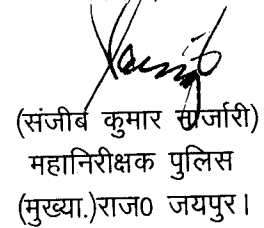 (संजीब कुमार नार्जारी)
महानिरीक्षक पुलिस
(मुख्या.)राज0 जयपुर।